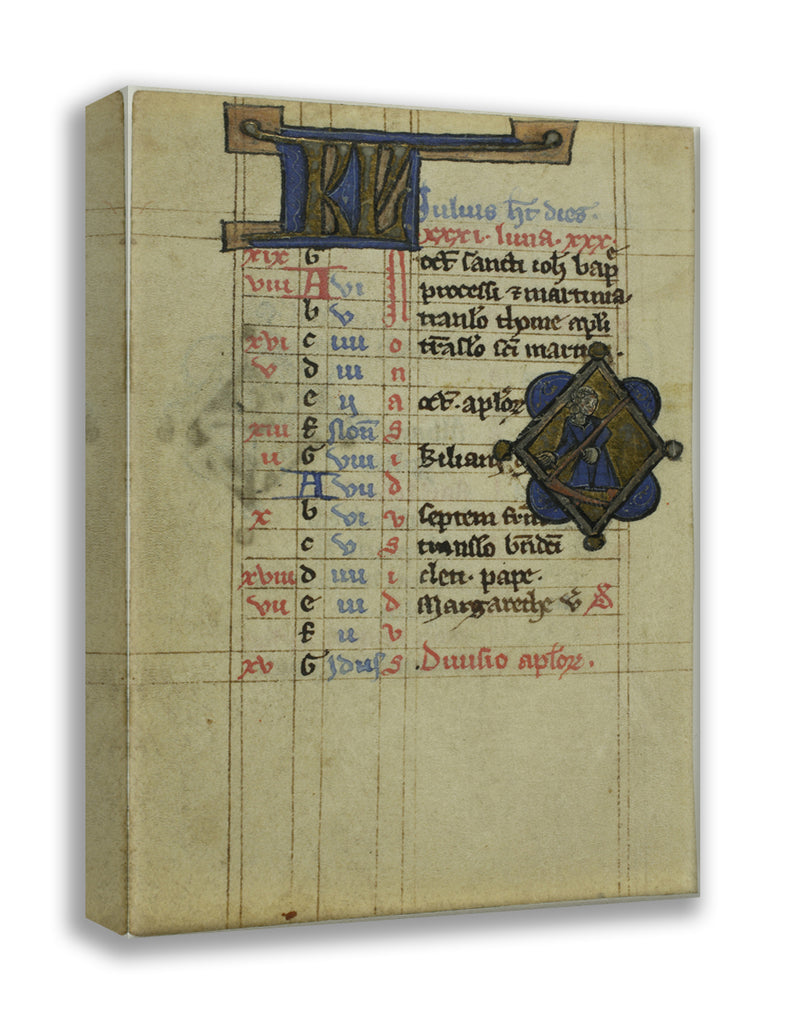 KL
Iulius h͞t dies.
xxxi. luna. xxx.
xix G oct̃ sancti ioh̃ bap̃
viii A vi processi ⁊ martinia
b v translo thome apl̃i
xvi c iiii o trãslo sc̃i martini.
v d iii n
e ij a oct̃. aplõꝝ
xiii f Non̄ s
ii G viii i Kilian
A vii d
x b vi v septem fr̃m
c v s translo bñdc̃i
xviii d iiii i cleti. pape.
vii e iii d Margarethe v̄
f ii v
xv G Idus s .Diuisio aplõꝝ.